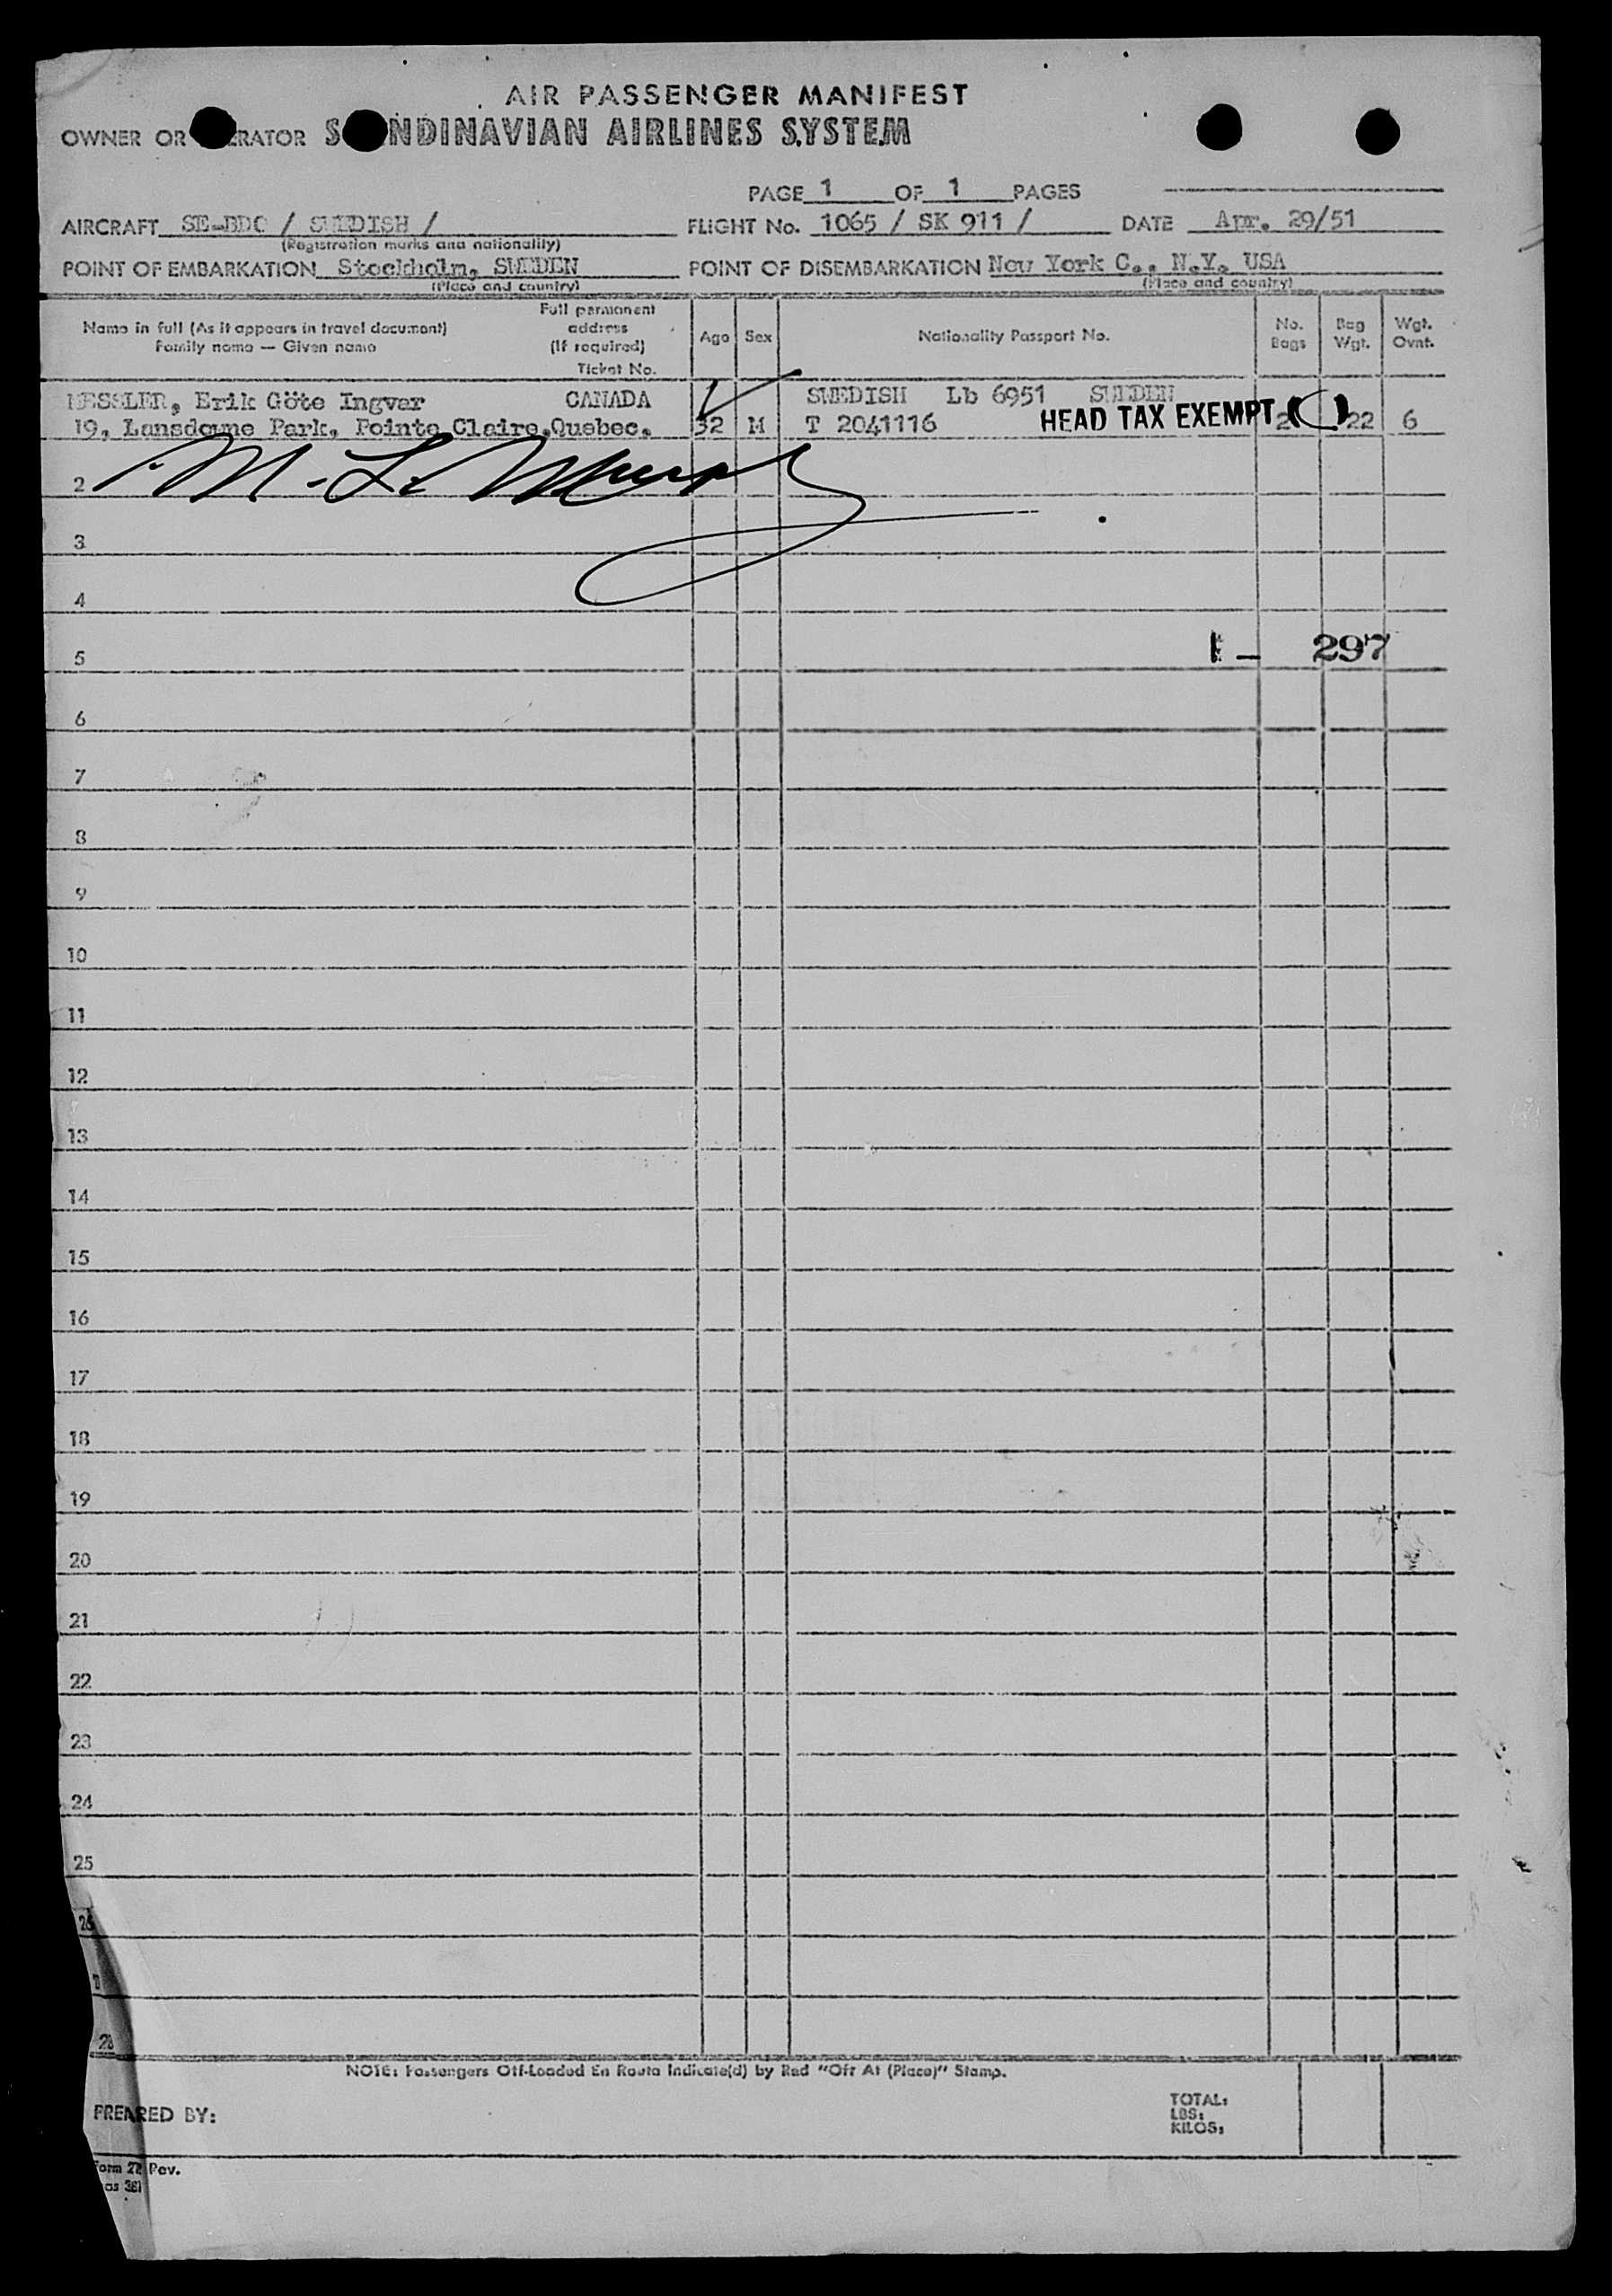 AIR PASSENGER MANIFEST
OWNER OR OPERATOR SCANDINAVIAN AIRLINES SYSTEM
PAGE 1 OF 1 PAGES
AIRCRAFT SE-BDC / SWEDISH / FLIGHT No. 1065 / SK 911 / DATE Apr. 29/51
(Registration marks and nationality)
POINT OF EMBARKATION Stockholm, SWEDEN POINT OF DISEMBARKATION New York C., N.Y. USA
(Place and country) (Place and country)
Name in full (As it appears in travel document)
Family name — Given name
Full permanent
address
(If required)
Ticket No.
Age Sex Nationality Passport No. No. Bags Bag Wgt. Wgt. Ovnt.
Erik Göte Ingvar CANADA SWEDISH Lb 6951 SWEDEN
19, Lansdowne Park, Pointe Claire, Quebec. 32 M T 2041116 HEAD TAX EXEMPT 2 22 6
2 M. L.
3
4
5 1 - 297
6
7
8
9
10
11
12
13
14
15
16
17
18
19
20
21
22
23
24
25
26
28
NOTE: Passengers Off-Loaded En Route Indicate(d) by Red "Off At (Place)" Stamp.
PREPARED BY:
TOTAL:
LBS:
KILOS:
Form 22 Rev.